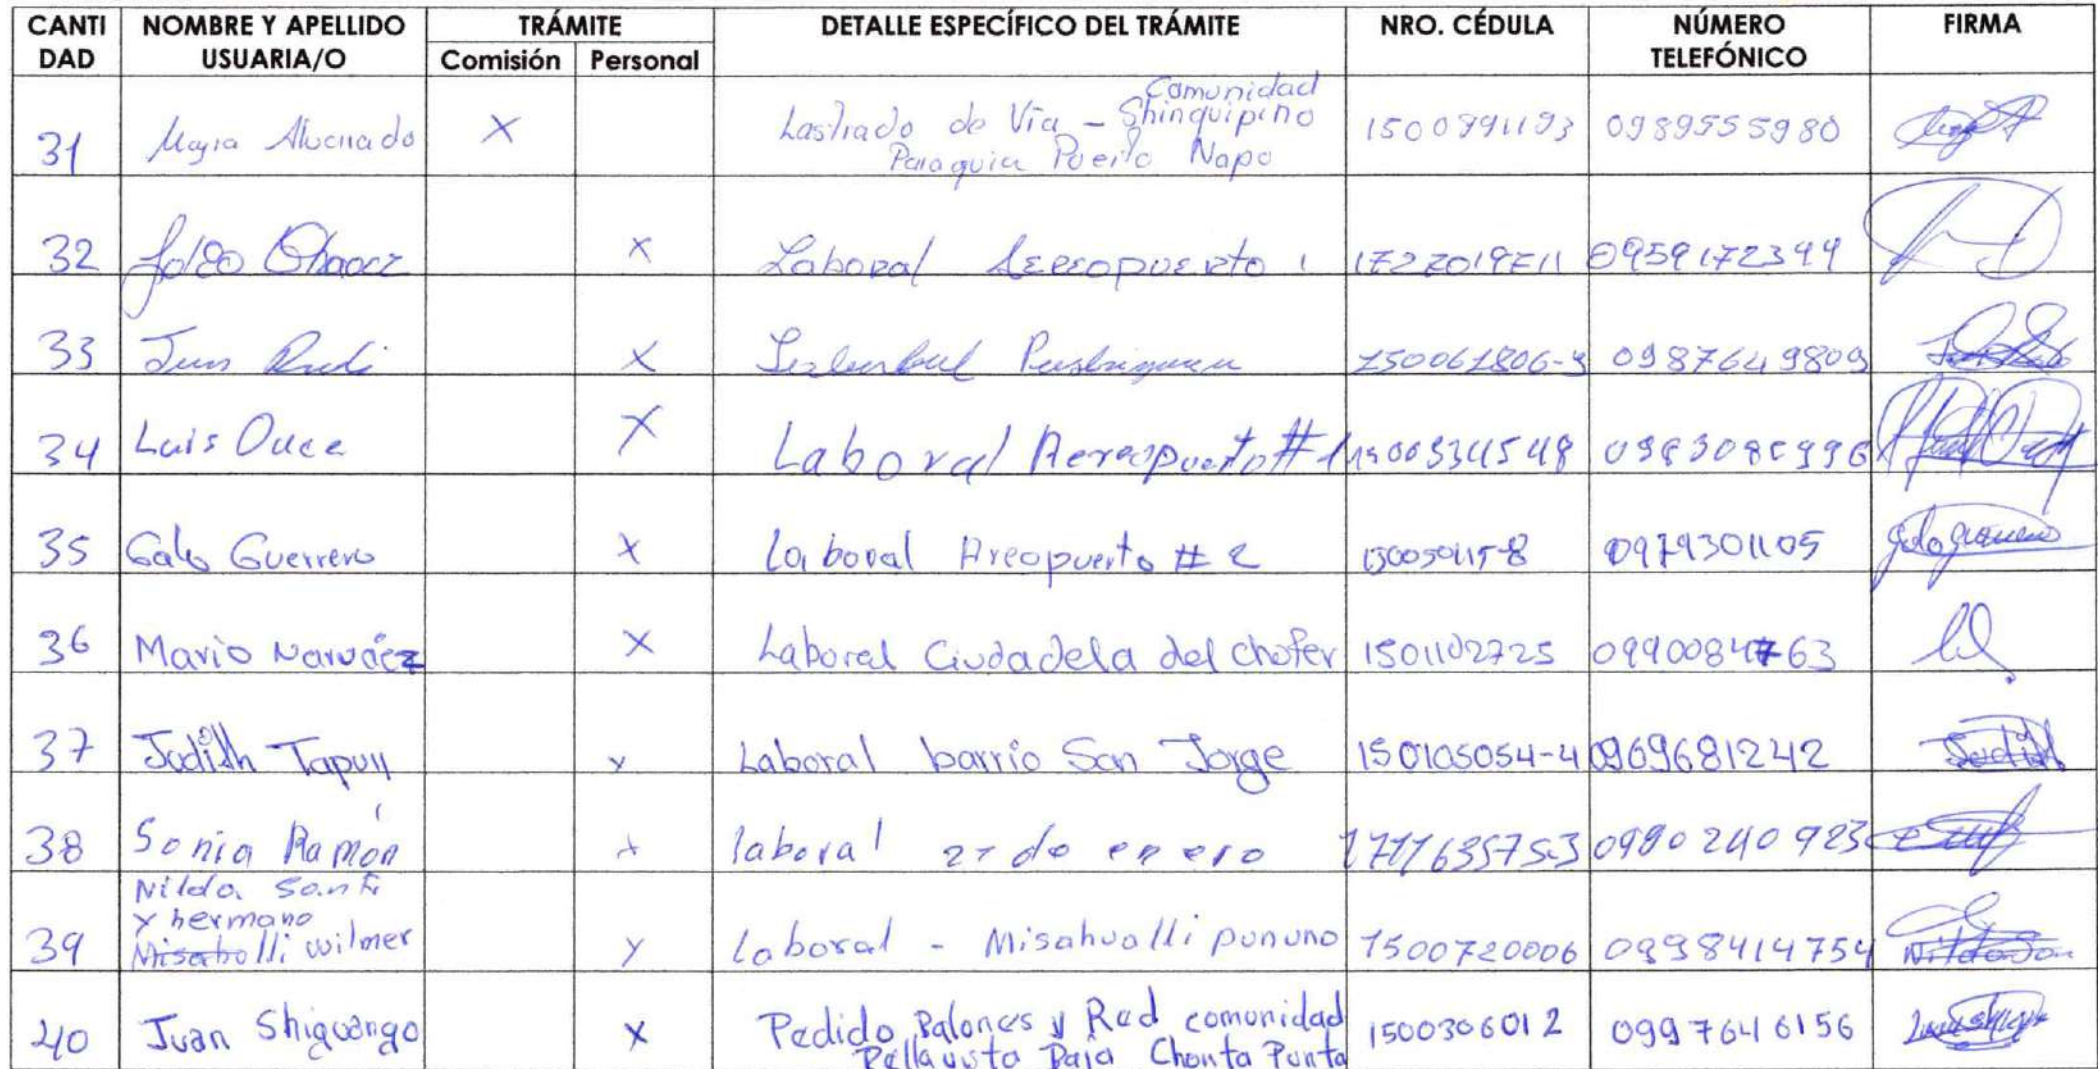 CANTI DAD | NOMBRE Y APELLIDO USUARIA/O | TRÁMITE | DETALLE ESPECÍFICO DEL TRÁMITE | NRO. CÉDULA | NÚMERO TELEFÓNICO | FIRMA
Comisión | Personal
31 | Mayra Alvarado | X | Lastrado de Vía - Comunidad Shinquipino Paroquia Puerto Napo | 1500991193 | 0989555980
32 | X | Laboral Aereopuerto 1 | 0959172344
33 | X | 150061806-9 | 0987649809
34 | Luis | X | Laboral Aereopuerto #1
35 | Galo Guerrero | X | Laboral Areopuerto # 2 | 0979301105 | galo guerrero
36 | Mario Narváez | X | Laboral Ciudadela del chofer | 1501102725 | 0990084763
37 | Judith Tapuy | x | Laboral barrio San Jorge | 150105054-4 | 0969681242 | Judith
38 | Sonia Ramón | x | laboral 27 de enero | 0990240923
39 | Nilda Santi y hermano Misahualli wilmer | y | Laboral - Misahualli pununo | 1500720006 | 0998414754
40 | Juan Shiguango | X | Pedido Balones y Red comunidad Bellavista Baja Chonta Punta | 1500306012 | 0997646156